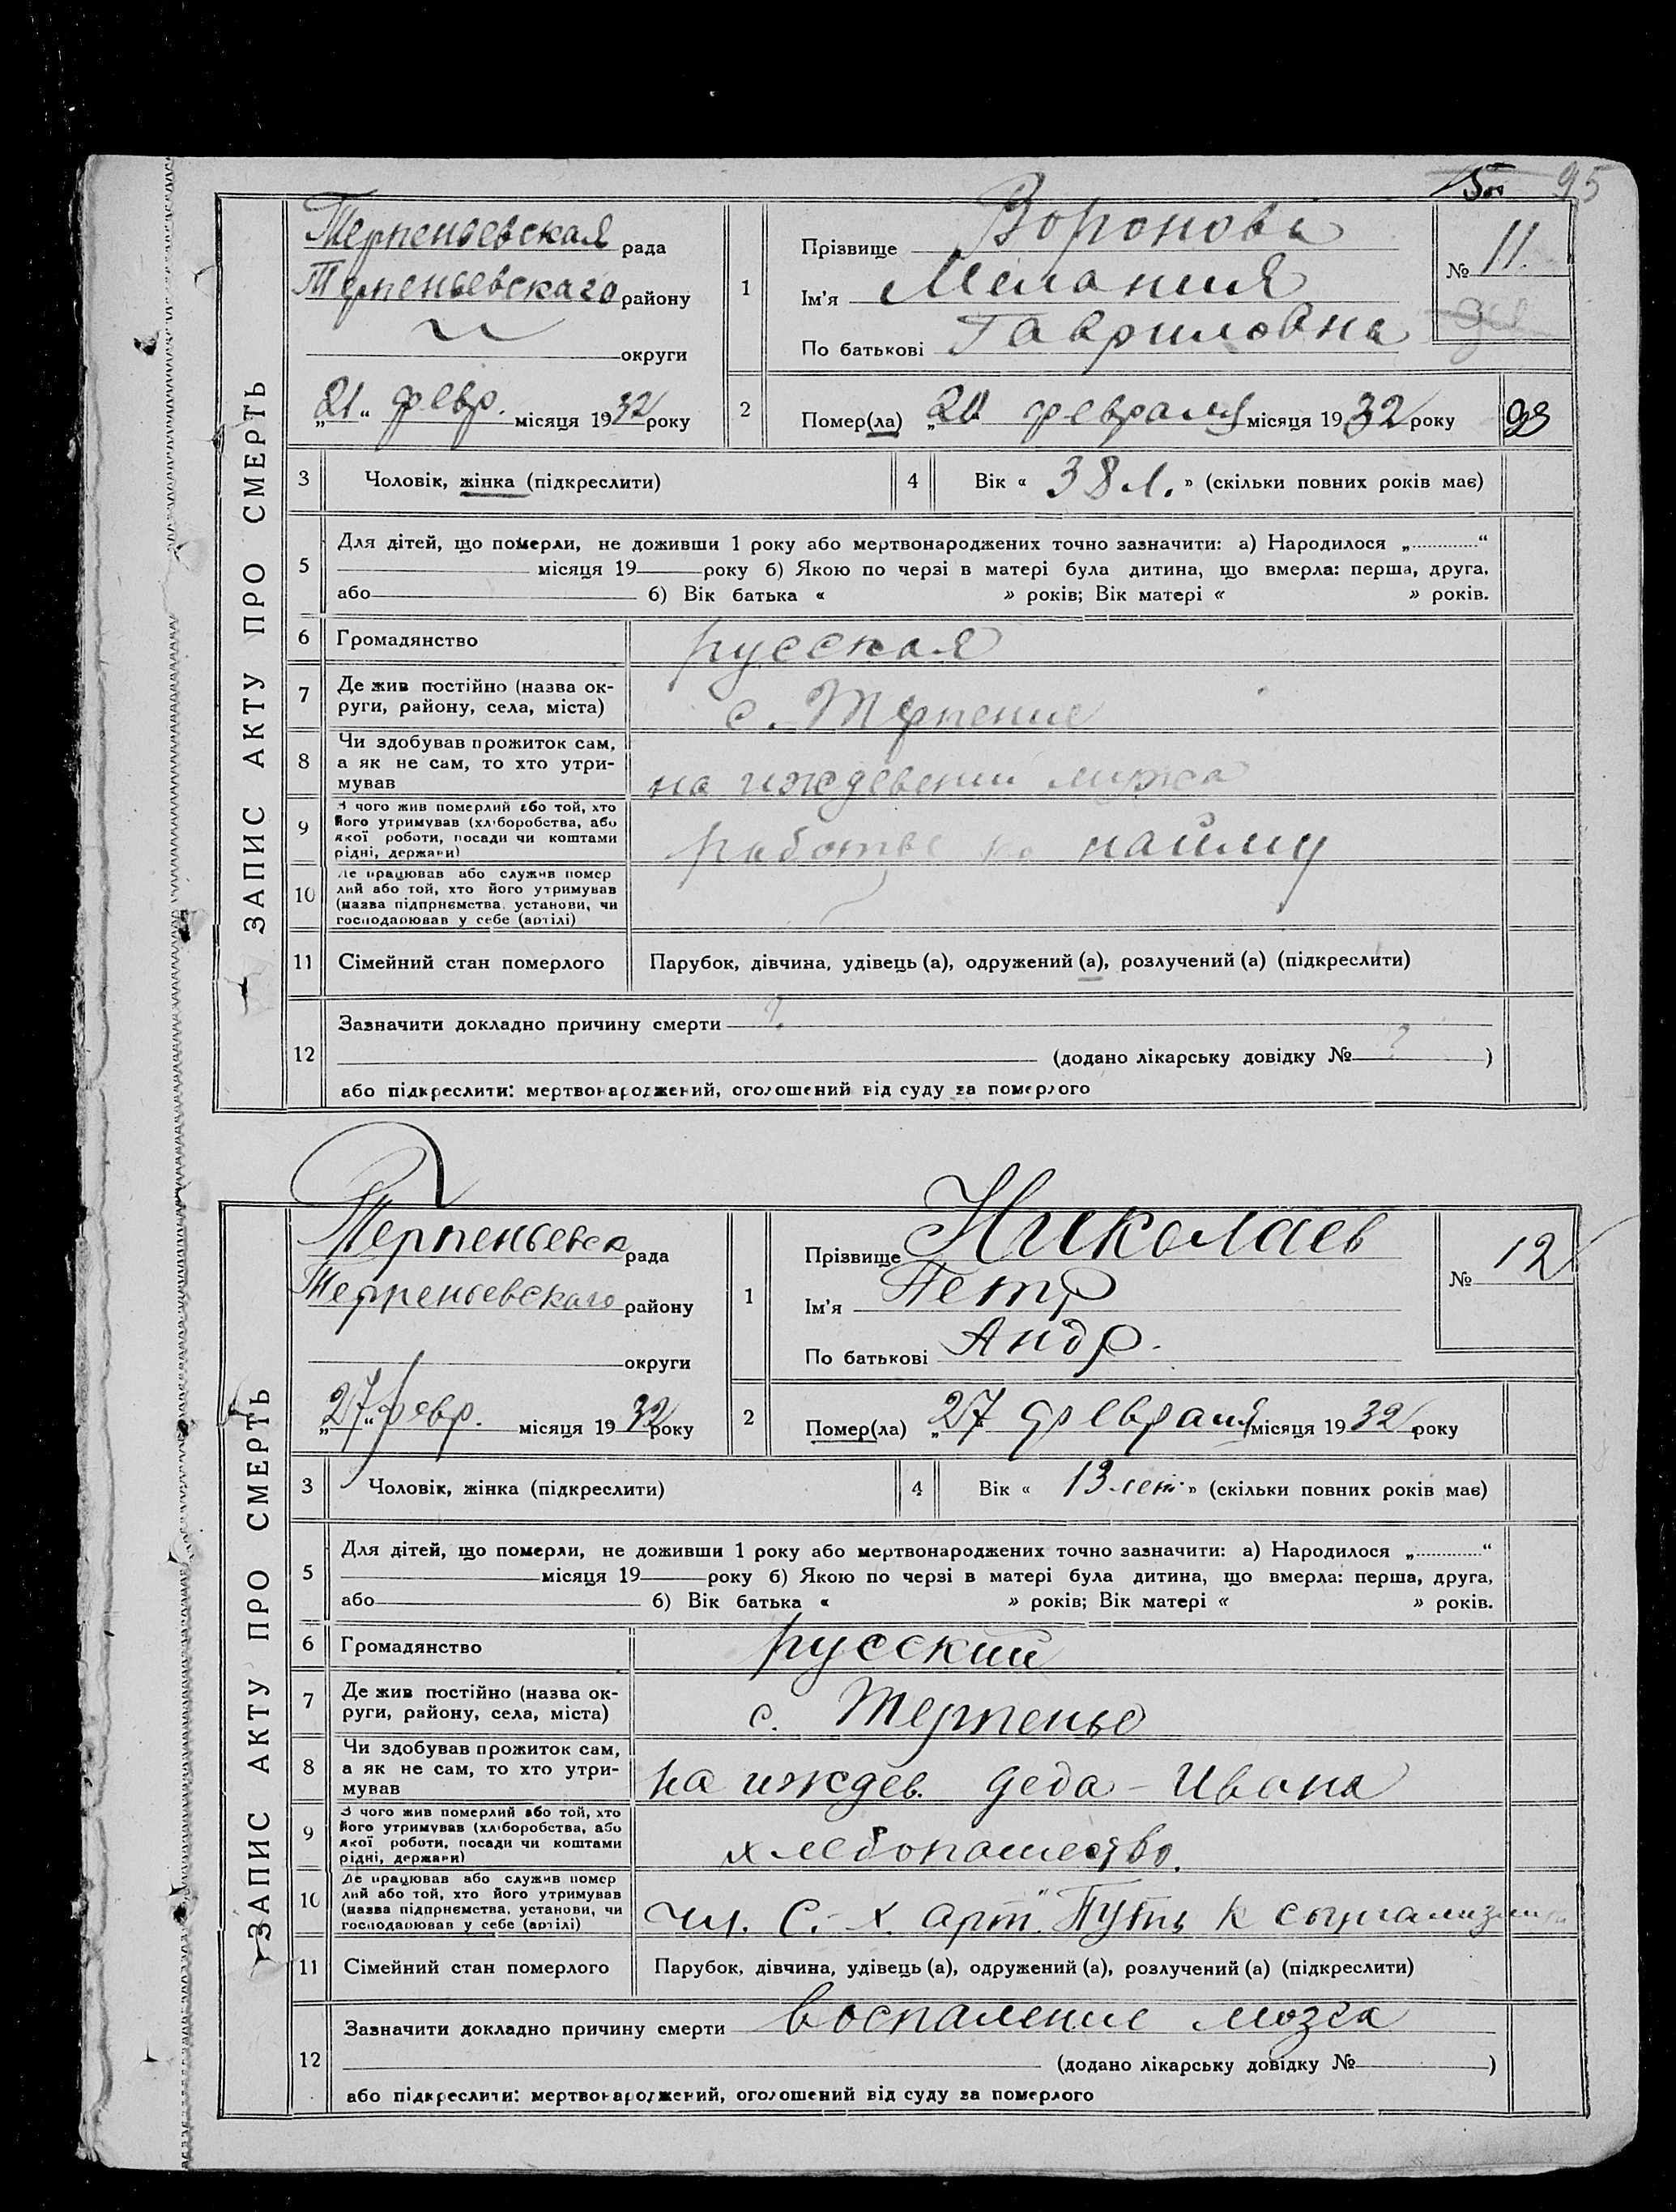 95
ЗАПИС АКТУ ПРО СМЕРТЬ
Терпеньевская рада
Терпеньевскаго району
округи
„21“ февр. місяця 1932 року
1
Прізвище Воронова
Ім'я Мелания
По батькові Гавриловна
№ 11.
2
Помер(ла) „ февраля місяця 1932 року
93
3 Чоловік, жінка (підкреслити)
4 Вік « 38 л. » (скільки повних років має)
5
Для дітей, що померли, не доживши 1 року або мертвонароджених точно зазначити: а) Народилося „.............“
місяця 19 року б) Якою по черзі в матері була дитина, що вмерла: перша, друга,
або б) Вік батька « » років; Вік матері « » років.
6 Громадянство русская
7
Де жив постійно (назва ок-
руги, району, села, міста)
с. Терпение
8
Чи здобував прожиток сам,
а як не сам, то хто утри-
мував
на иждевении мужа
9
З чого жив померлий або той, хто
його утримував (хліборобства, або
якої роботи, посади чи коштами
рідні, держави)
работае по найму
10
Де працював або служив помер
лий або той, хто його утримував
(назва підприємства, установи, чи
господарював у себе (артілі)
11 Сімейний стан померлого
Парубок, дівчина, удівець (а), одружений (а), розлучений (а) (підкреслити)
12
Зазначити докладно причину смерти ?
(додано лікарську довідку № ? )
або підкреслити: мертвонароджений, оголошений від суду за померлого
ЗАПИС АКТУ ПРО СМЕРТЬ
Терпеньевск рада
Терпеньевскаго району
округи
„27“ февр. місяця 1932 року
1
Прізвище Николаев
Ім'я Петр
По батькові Андр.
№ 12
2
Помер(ла) „27 февраля місяця 1932 року
3 Чоловік, жінка (підкреслити)
4 Вік « 13 лет » (скільки повних років має)
5
Для дітей, що померли, не доживши 1 року або мертвонароджених точно зазначити: а) Народилося „.............“
місяця 19 року б) Якою по черзі в матері була дитина, що вмерла: перша, друга,
або б) Вік батька « » років; Вік матері « » років.
6 Громадянство русский
7
Де жив постійно (назва ок-
руги, району, села, міста)
с. Терпенье
8
Чи здобував прожиток сам,
а як не сам, то хто утри-
мував
на иждев. деда - Ивана
9
З чого жив померлий або той, хто
його утримував (хліборобства, або
якої роботи, посади чи коштами
рідні, держави)
хлебопашество.
10
Де працював або служив помер
лий або той, хто його утримував
(назва підприємства, установи, чи
господарював у себе (артілі)
чл. С.-х. арт. "Путь к социализму
11 Сімейний стан померлого
Парубок, дівчина, удівець (а), одружений (а), розлучений (а) (підкреслити)
12
Зазначити докладно причину смерти воспаление мозга
(додано лікарську довідку № )
або підкреслити: мертвонароджений, оголошений від суду за померлого